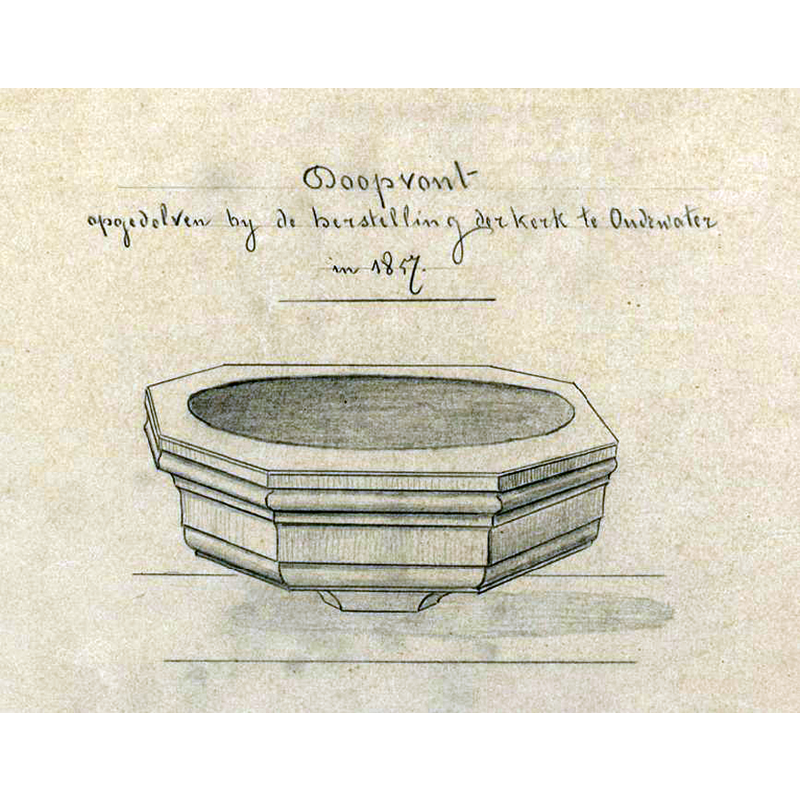 Doopvont
opgedolven by de herstelling der kerk te Oudewater
in 1857.